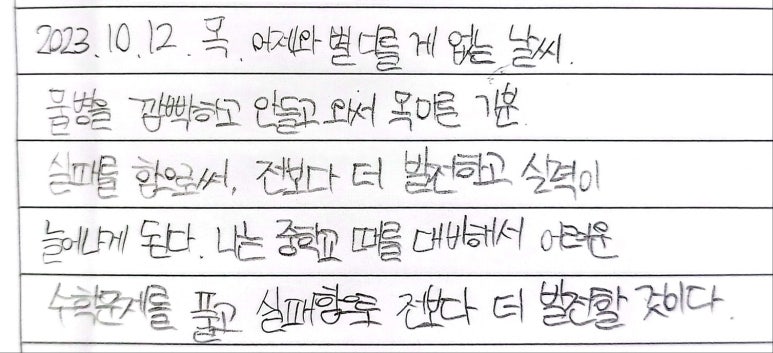 2023. 10. 12. 목. 어제와 별 다를 게 없는 날씨.
물병을 깜빡하고 안들고 와서 목마른 기분.
실패를 함으로써, 전보다 더 발전하고 실력이
늘어나게 된다. 나는 중학교 때를 대비해서 어려운
수학문제를 풀고 실패함으로 전보다 더 발전할 것이다.